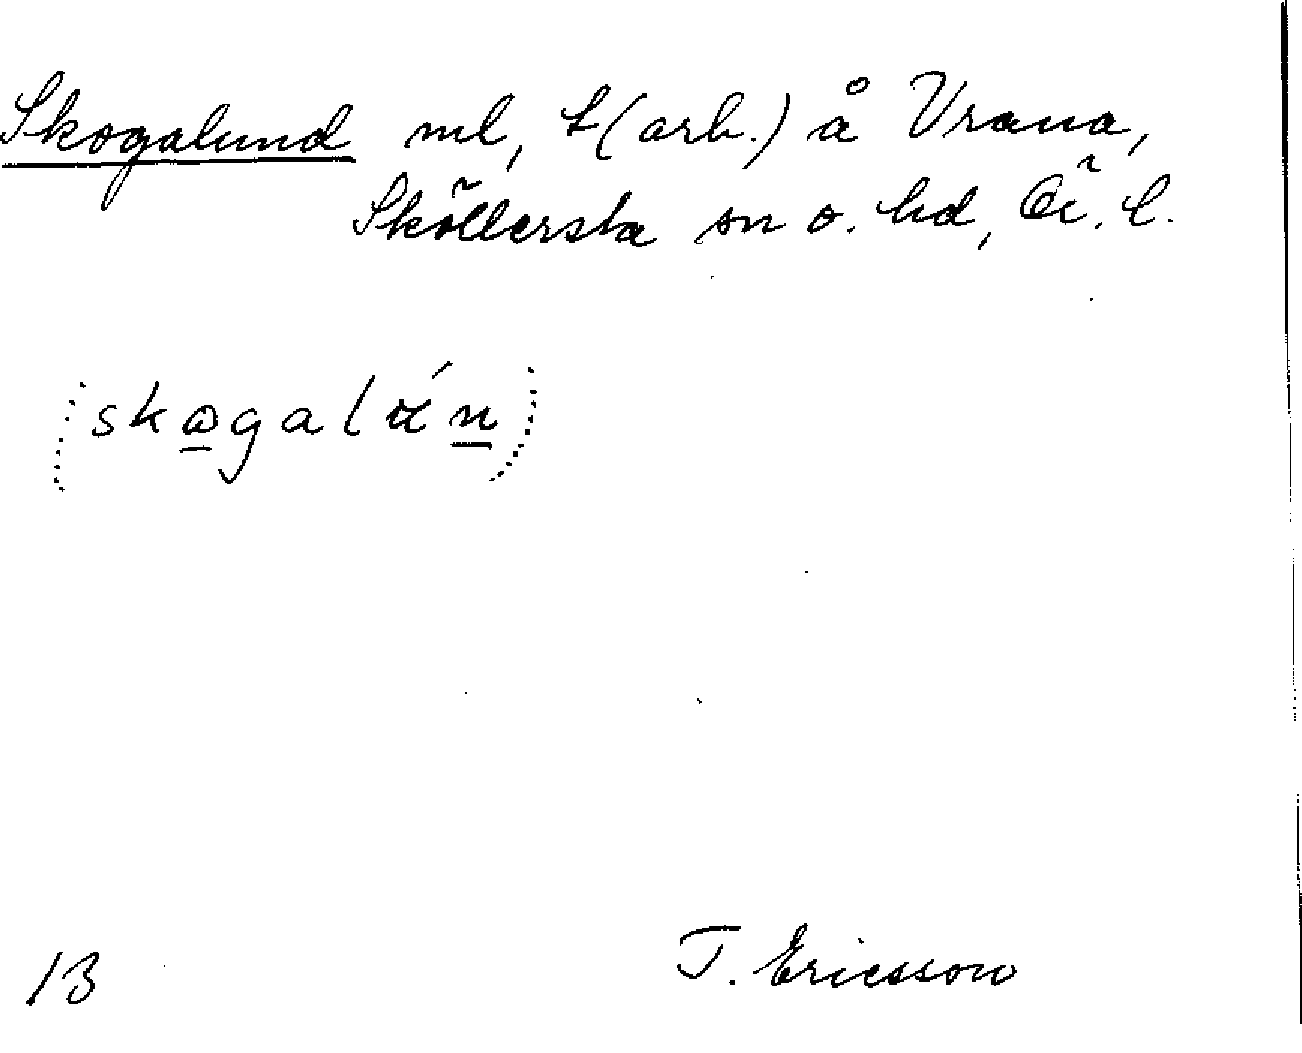 Skogalund ml, t (arb.) å Vrana,
Sköllersta sn o. hd, Ör. l.
(skogalún)
13 T. Ericsson